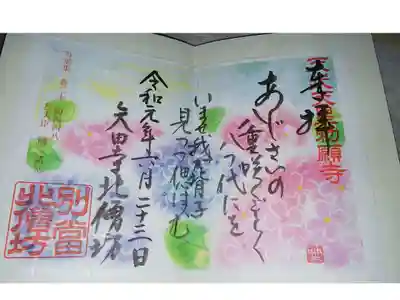 奉拝
勅願寺
あじさいの
重咲くごとく
八つ代にを
いませ我が背子
見つつ偲はむ
令和元年六月二十三日
矢田寺北僧坊
万葉集
別當
北僧坊